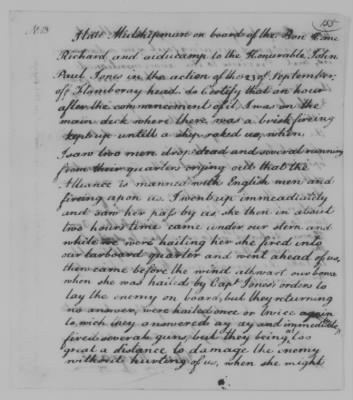 No 23
155
I late Midshipman on board of the Bon Home
Richard and aiducamp to the Honourable John
Paul Jones in the action of the 23d of September,
off Flamboray head do Certify that an hour
after the commancement of it, I was on the
main deck where there was a brisk fireing
kept up untill a ship raked us, when
I saw two men drop dead and several running
from their quarters crying out that the
Alliance is manned with English men and
fireing upon us. I went up immeadiatily
and saw her pass by us she then in about
two hours time came under our stern and
while we were hailing her she fired into
our larboard quarter and went ahead of us,
then came before the wind athwart our bows
when she was hailed by Capt Jones's orders to
lay the enemy on board, but they returning
no answer, were hailed once or twice again
to wich they answered ay ay and immediately
fired several guns, but they being at too
great a distance to damage the enemy
without hurting of us, when she might